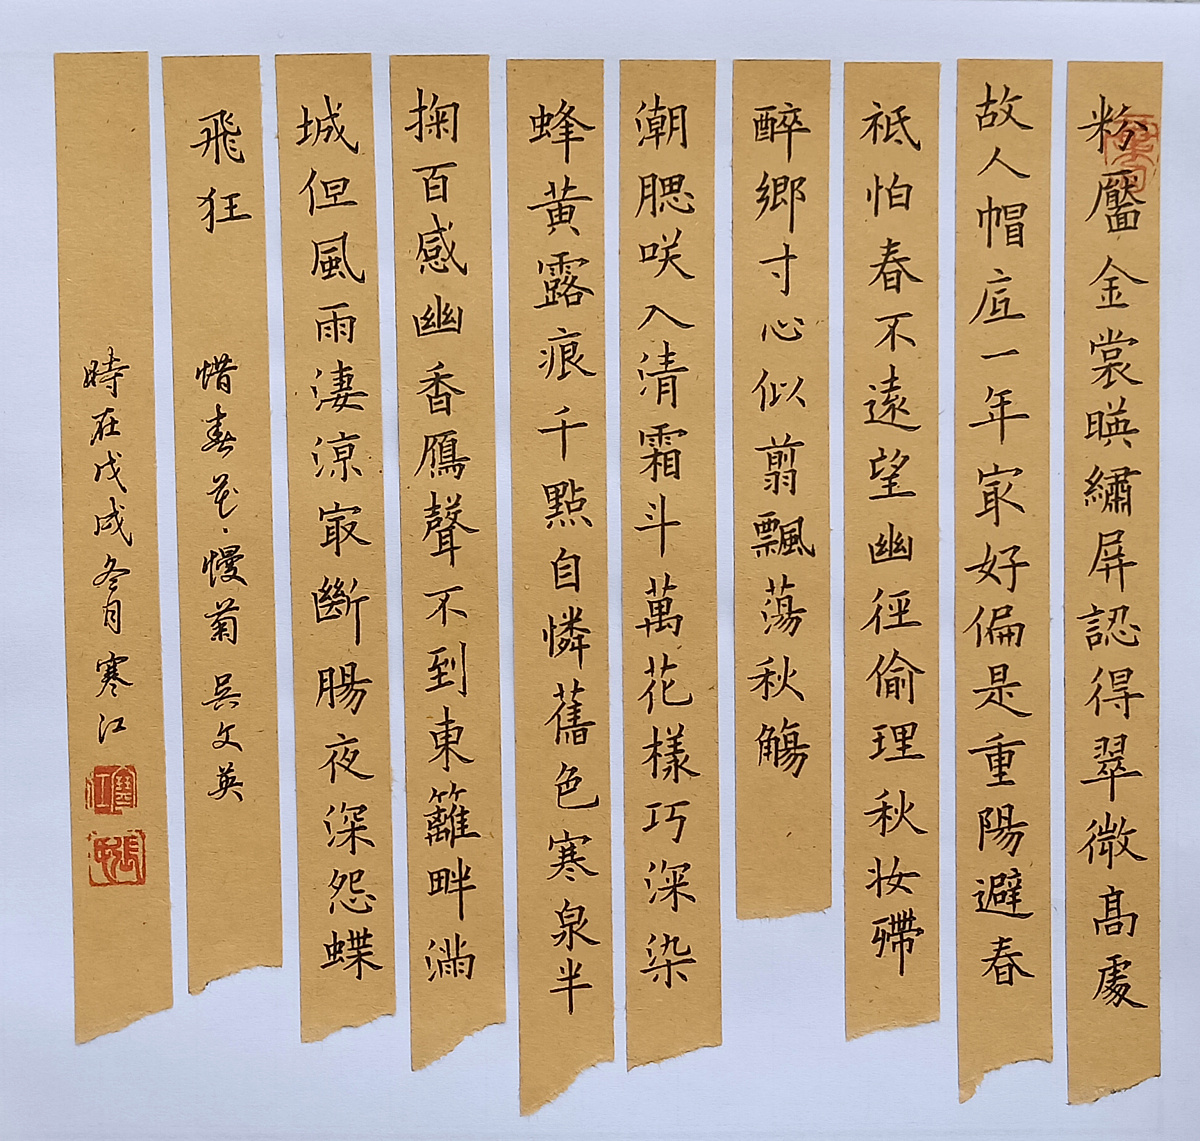 粉靨金裳暎繡屏認得翠微髙處
故人帽底一年㝡好偏是重陽避春
祇怕春不遠望幽徑偷理秋妝殢
醉鄉寸心似翦飄蕩秋觴
潮腮咲入清霜斗萬花樣巧深染
蜂黃露痕千點自憐舊色寒泉半
掬百感幽香鴈聲不到東籬畔滿
城但風雨淒涼㝡斷腸夜深怨蝶
飛狂 惜春花、慢菊 吳文英
時在戊戌冬月寒江
寒江